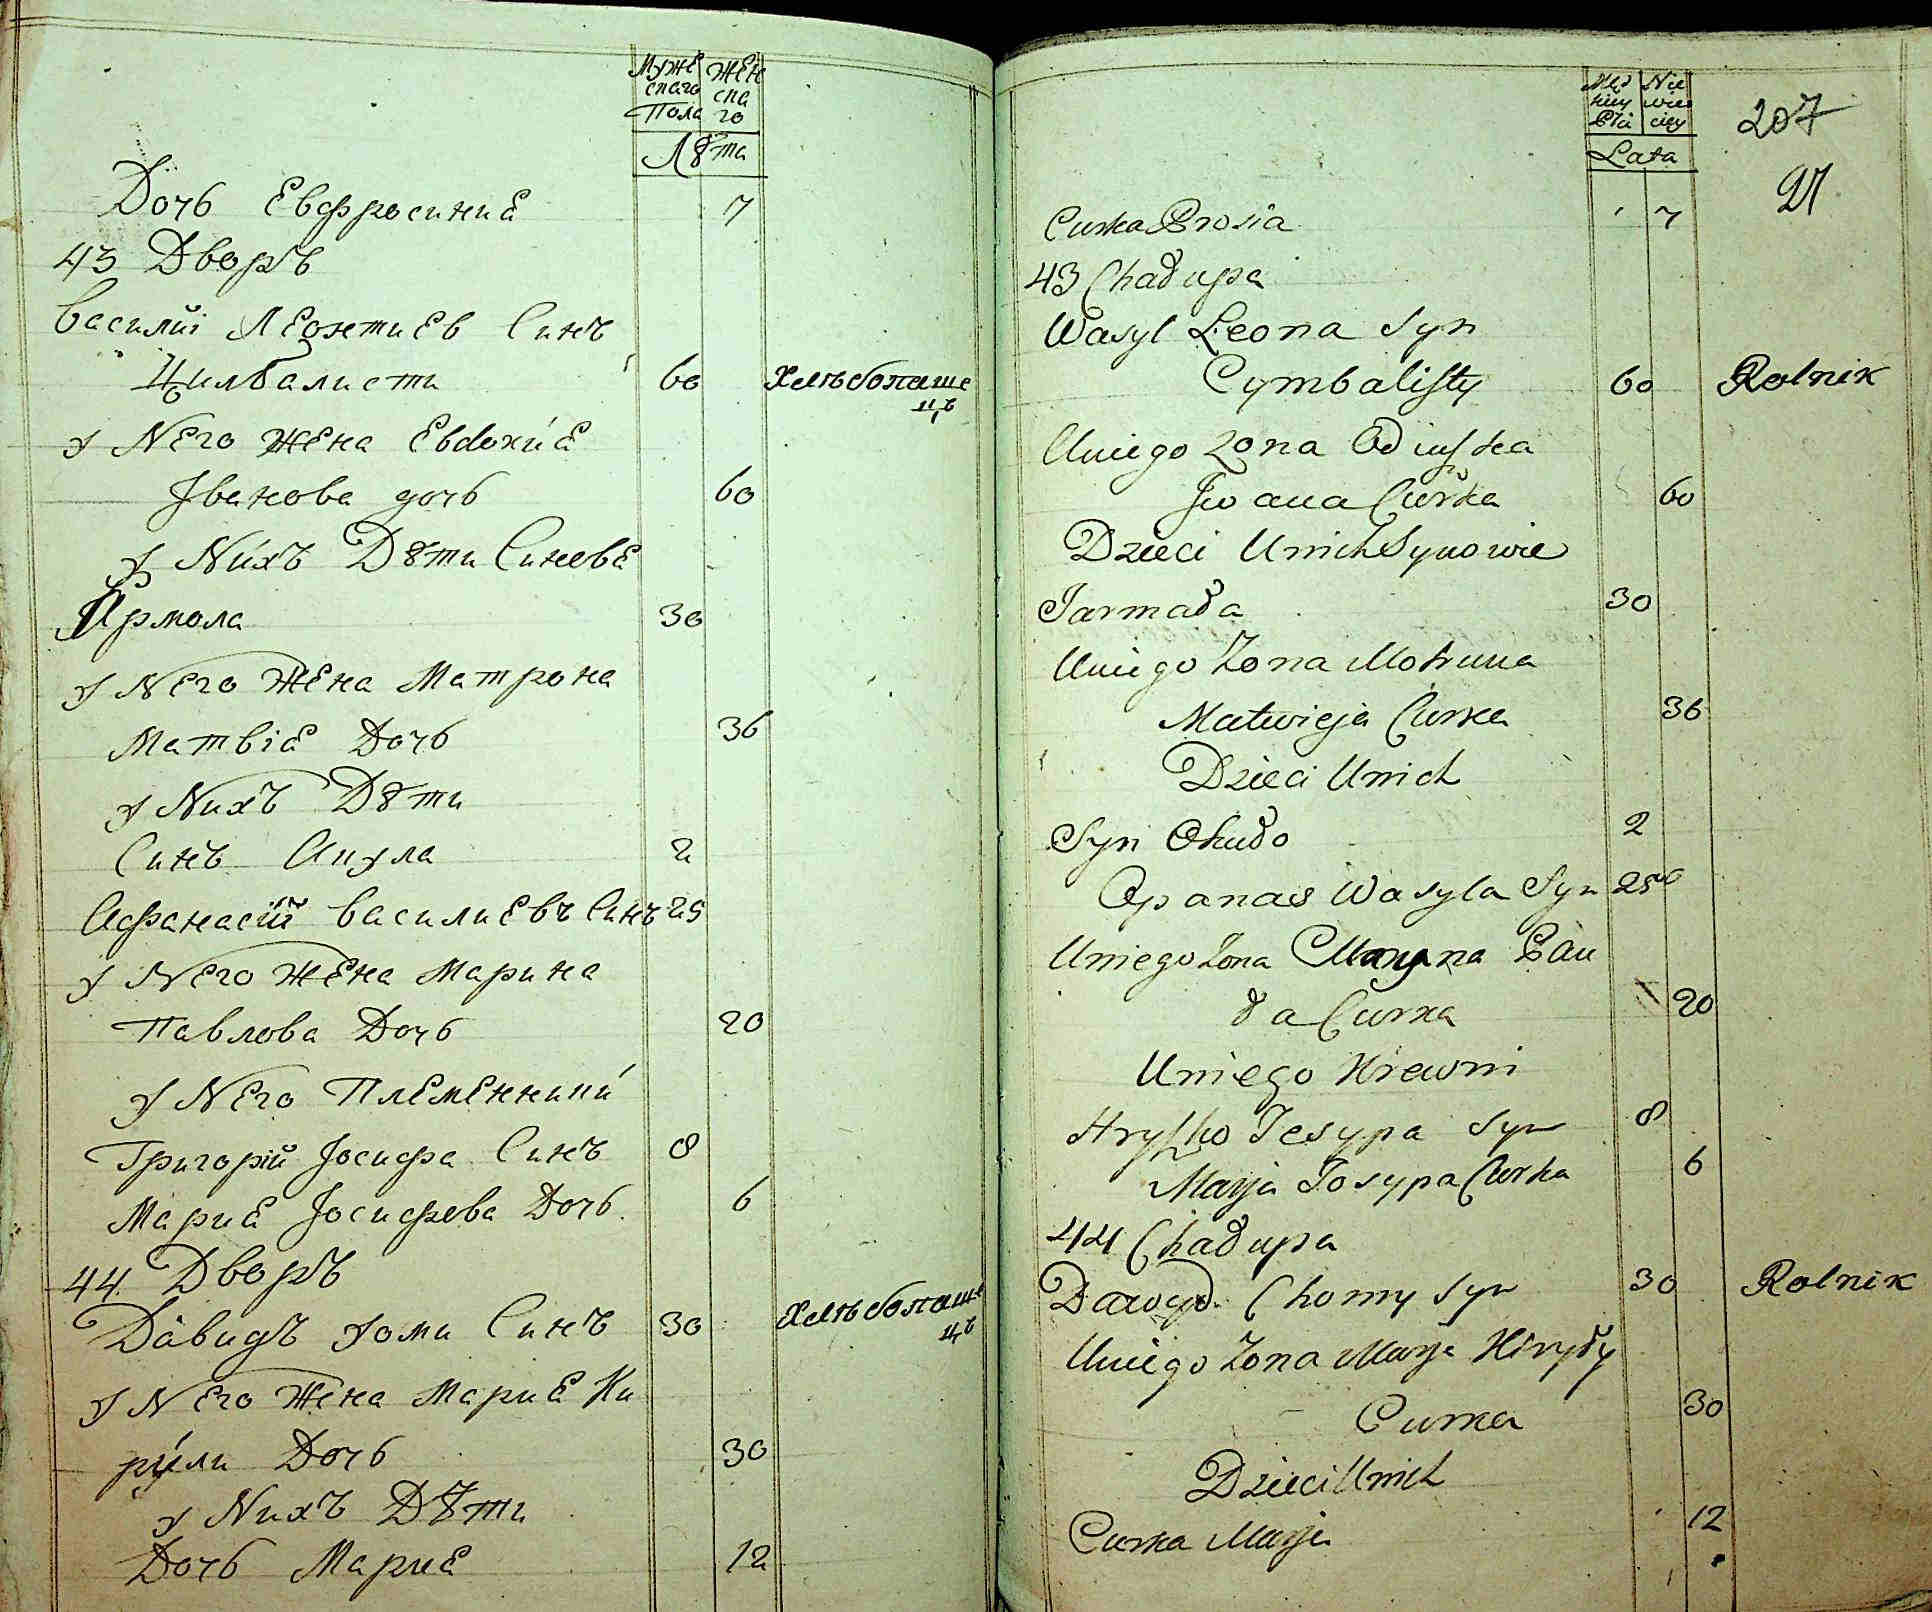 Муже Жен
скаго ска
Пола го
Лѣта
Дочь Евфросиниꙗ 7
43 Дворъ
Василий Леонтиев Синъ
Цимбалисти 60 Хлѣбопаше
цъ
У Него Жена Евдокиꙗ
Іванова дочь 60
У Нихъ Дѣти Синове
Ярмола 30
У Него Жена Матрона
Матвіꙗ Дочь 36
У Нихъ Дѣти
Синъ Акула 2
Афанасій Василиевъ Синъ 25
У Него Жена Марина
Павлова Дочь 20
У Него Племенники
Григорій Іосифа Синъ 8
Мариꙗ Іосифова Дочь 6
44 Дворъ
Давидъ Хоми Синъ 30 Хлѣбопаше
цъ
У Него Жена Мариꙗ Ки
рили Дочь 30
У Нихъ Дѣти
Дочь Мариꙗ 12
Męż Nie
kiey wie
Płci ciey
Lata
207
21
Curka Prosia 7
43 Chałupa
Wasyl Leona Syn
Cymbalisty 60 Rolnik
Uniego Zona Odiuska
Iwana Curka 60
Dzieci Unich Synowie
Jarmała 30
Uniego Zona Motruna
Matwieja Curka 36
Dzieci Unich
Syn Okuło 2
Opanas Wasyla Syn 25
Uniego Zona Maryna Pau
ła Curka 20
Uniego Krewni
Hryſko Josypa Syn 8
Marja Josypa Curka 6
44 Chałupa
Dawyd Chomy Syn 30 Rolnik
Uniego Zona Marja Kiryły
Curka 30
Dzieci Unich
Curka Marja 12